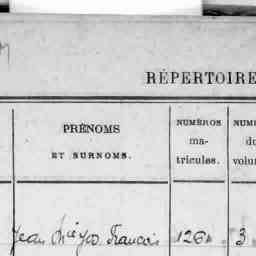 RÉPERTOIRE
PRÉNOMS
ET SURNOMS.
NUMÉROS
ma-
tricules.
NUM
du
volum
Jean Mie Jph François 126 3